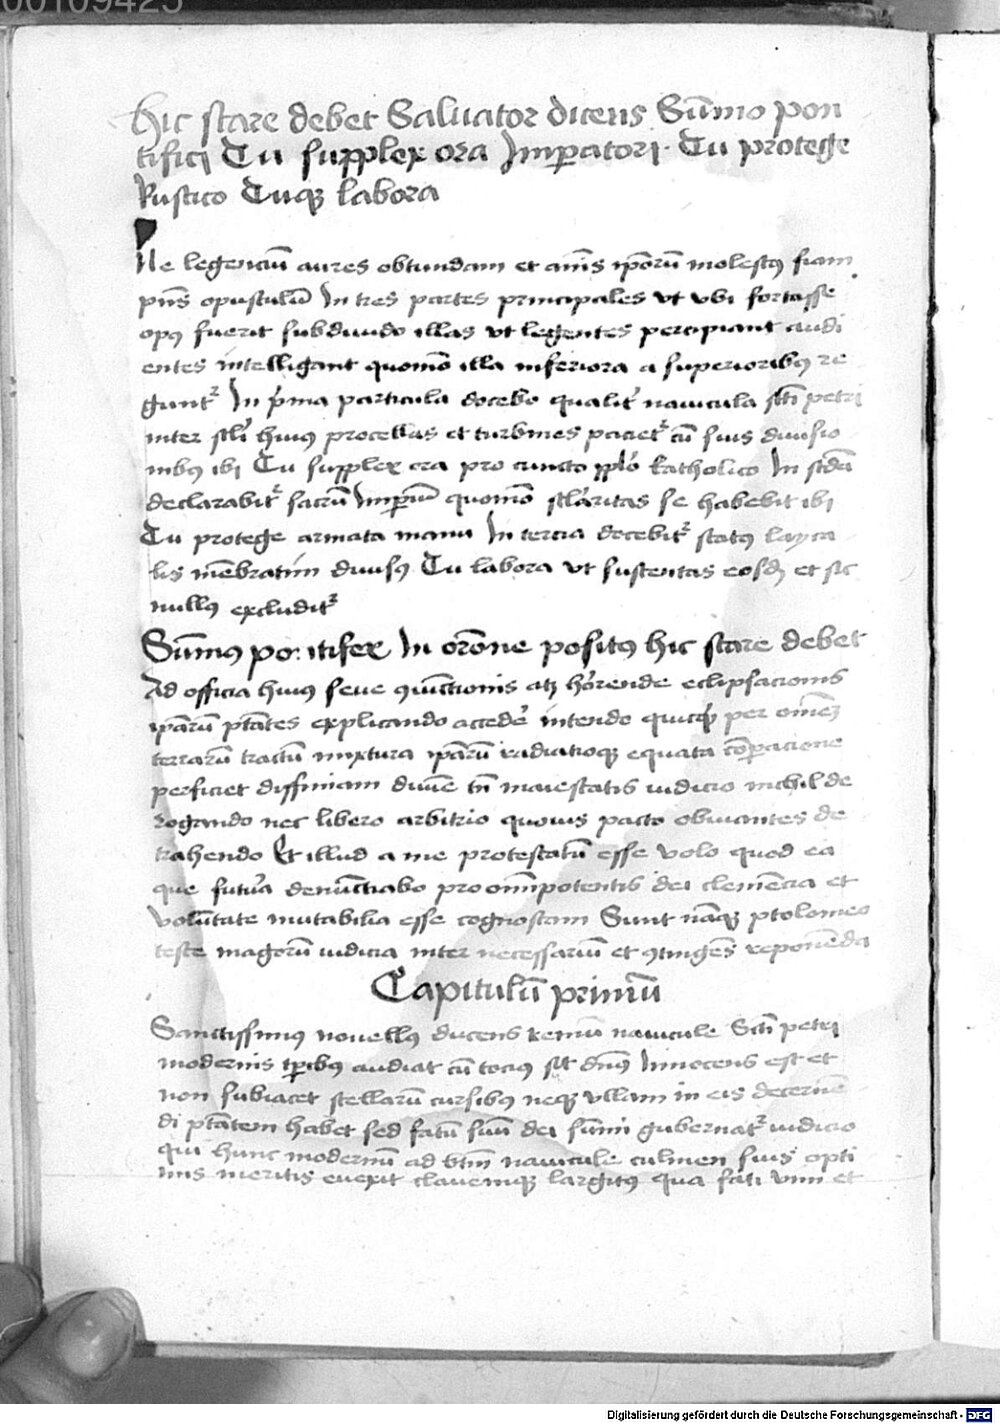 00109425
Hic stare debet Saluator dicens Sūmo pon
tifici Tu supplex ora Imperatori · Tu protege
Rustico Tuqꝫ labora
Ne legenciū aures obtundam et aīīs ipōrū molestꝯ fiam
pñs opusculū In tres partes principales vt vbi fortasse
opꝯ fuerit subdiuido illas vt legentes percipiant audi
entes intelligant quomō illa inferiora a superioribꝯ re
guntᷣ In pͥma particula docebo qualitͥ nauicula scti petri
inter scłi huiꝯ procellas et turbines pacietᷣ cū suis diuisio
nibꝯ ibi Tu supplex ora pro cuncto ppło katholico In scďa
declarabitᷣ sacrū Imperiū quomō scłaritas se habebit ibi
Tu protege armata manu In tercia docebitᷣ statꝯ layca
lis mēbratim diuisꝯ Tu labora vt sustentas eosdꝫ et sic
nullꝯ excluditᷣ
Sūmꝯ pontifex In orōne positꝯ hic stare debet
Ad officia huiꝯ seue ꝯiūctionis atqꝫ horrende eclipsacionis
ipārū ptātes explicando accedē intendo quicqͥd per omēꝫ
terrarū tractū mixtura ipārū radiatioqꝫ equata cōparacione
perficiet diffiniam diuīe tn̄ maiestatis iudicio nichil de
rogando nec libero arbitrio quouis pacto obuiantes de
trahendo Et illud a me protestatū esse volo quod ea
que futura denūctiabo pro omīpotentis dei clemēcia et
volūtate mutabilia esse cognoscam Sunt nāqꝫ ptolomeo
teste magorū iudicia inter necessariū et ꝯtingēs reponēda
Capitulū primū
Sanctissimus nouellꝯ ducens remū nauicule Scti petri
modernis tpribꝯ audiat cū tociꝯ sit dn̄s Innocens est et
non subiacet stellarū cursibꝯ neqꝫ vllam in eis decernē
di ptātem habet sed fatū suū dei sūmi gubernatᷣ iudicio
qui hunc modernū ad btm̄ nauicule culmen suis opti
mis meritis euexit clauemqꝫ largitꝯ qua fati vim et
Digitalisierung gefördert durch die Deutsche Forschungsgemeinschaft - DFG